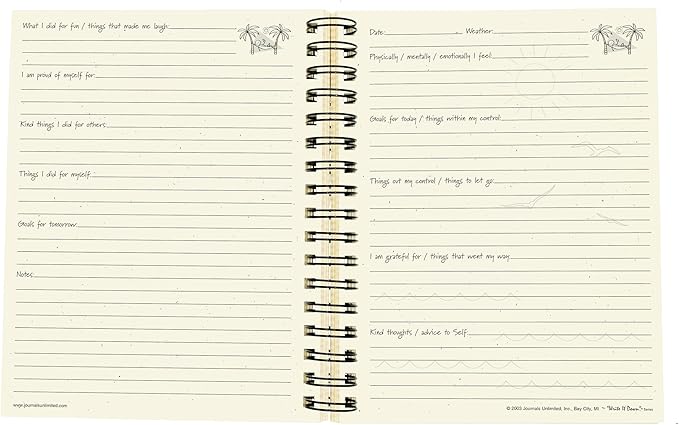 What I did for fun / things that made me laugh:
I am proud of myself for:
Kind things I did for others:
Things I did for myself:
Goals for tomorrow:
Notes:
www.journalsunlimited.com
Date: Weather:
Physically / mentally / emotionally I feel:
Goals for today / things within my control:
Things out my control / things to let go:
I am grateful for / things that went my way:
Kind thoughts / advice to Self:
© 2003 Journals Unlimited, Inc., Bay City, MI ~ "Write It Down!" ~ Series